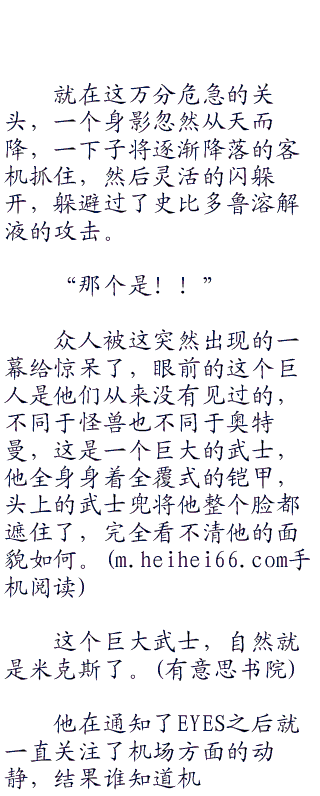 就在这万分危急的关
头，一个身影忽然从天而
降，一下子将逐渐降落的客
机抓住，然后灵活的闪躲
开，躲避过了史比多鲁溶解
液的攻击。
“那个是！！”
众人被这突然出现的一
幕给惊呆了，眼前的这个巨
人是他们从来没有见过的，
不同于怪兽也不同于奥特
曼，这是一个巨大的武士，
他全身身着全覆式的铠甲，
头上的武士兜将他整个脸都
遮住了，完全看不清他的面
貌如何。(m.heihei66.com手
机阅读)
这个巨大武士，自然就
是米克斯了。(有意思书院)
他在通知了EYES之后就
一直关注了机场方面的动
静，结果谁知道机